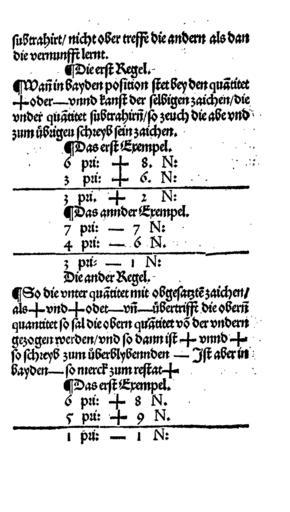 subtrahirt/ nicht ober treffe die andern als dan
die vernunfft lernt.
¶Die erst Regel.
¶Wañ in bayden position stet bey den quãtitet
+ oder — vnnd kanst der selbigen zaichen/die
vnder quãtitet subtrahirñ/so zeuch die abe vnd
zum übrigen schreyb sein zaichen.
¶Das erst Exempel.
6 pri: + 8. N:
3 pri: + 6. N:
3 pri. + 2 N:
¶Das annder Exempel.
7 pri: — 7 N:
4 pri: — 6 N.
3 pri: — 1 N:
Die ander Regel.
¶So die vnter quãtitet mit obgesatztẽ zaichen/
als + vnd + odet — vñ — übertrifft die oberñ
quantitet so sal die obern quãtitet võ der vndern
gezogen werden/vnd so dann ist + vnnd +
so schreyb zum überblybennden — Ist aber in
bayden — so merck zum restat +
¶Das erst Exempel.
6 pri: + 8 N.
5 pri: + 9 N.
1 pri: — 1 N: